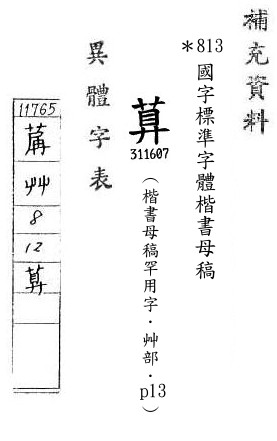 補充資料
*813 國字標準字體楷書母稿
萛
311607
(楷書母稿罕用字．艸部．p13)
異體字表
11765
艸
8
12
萛